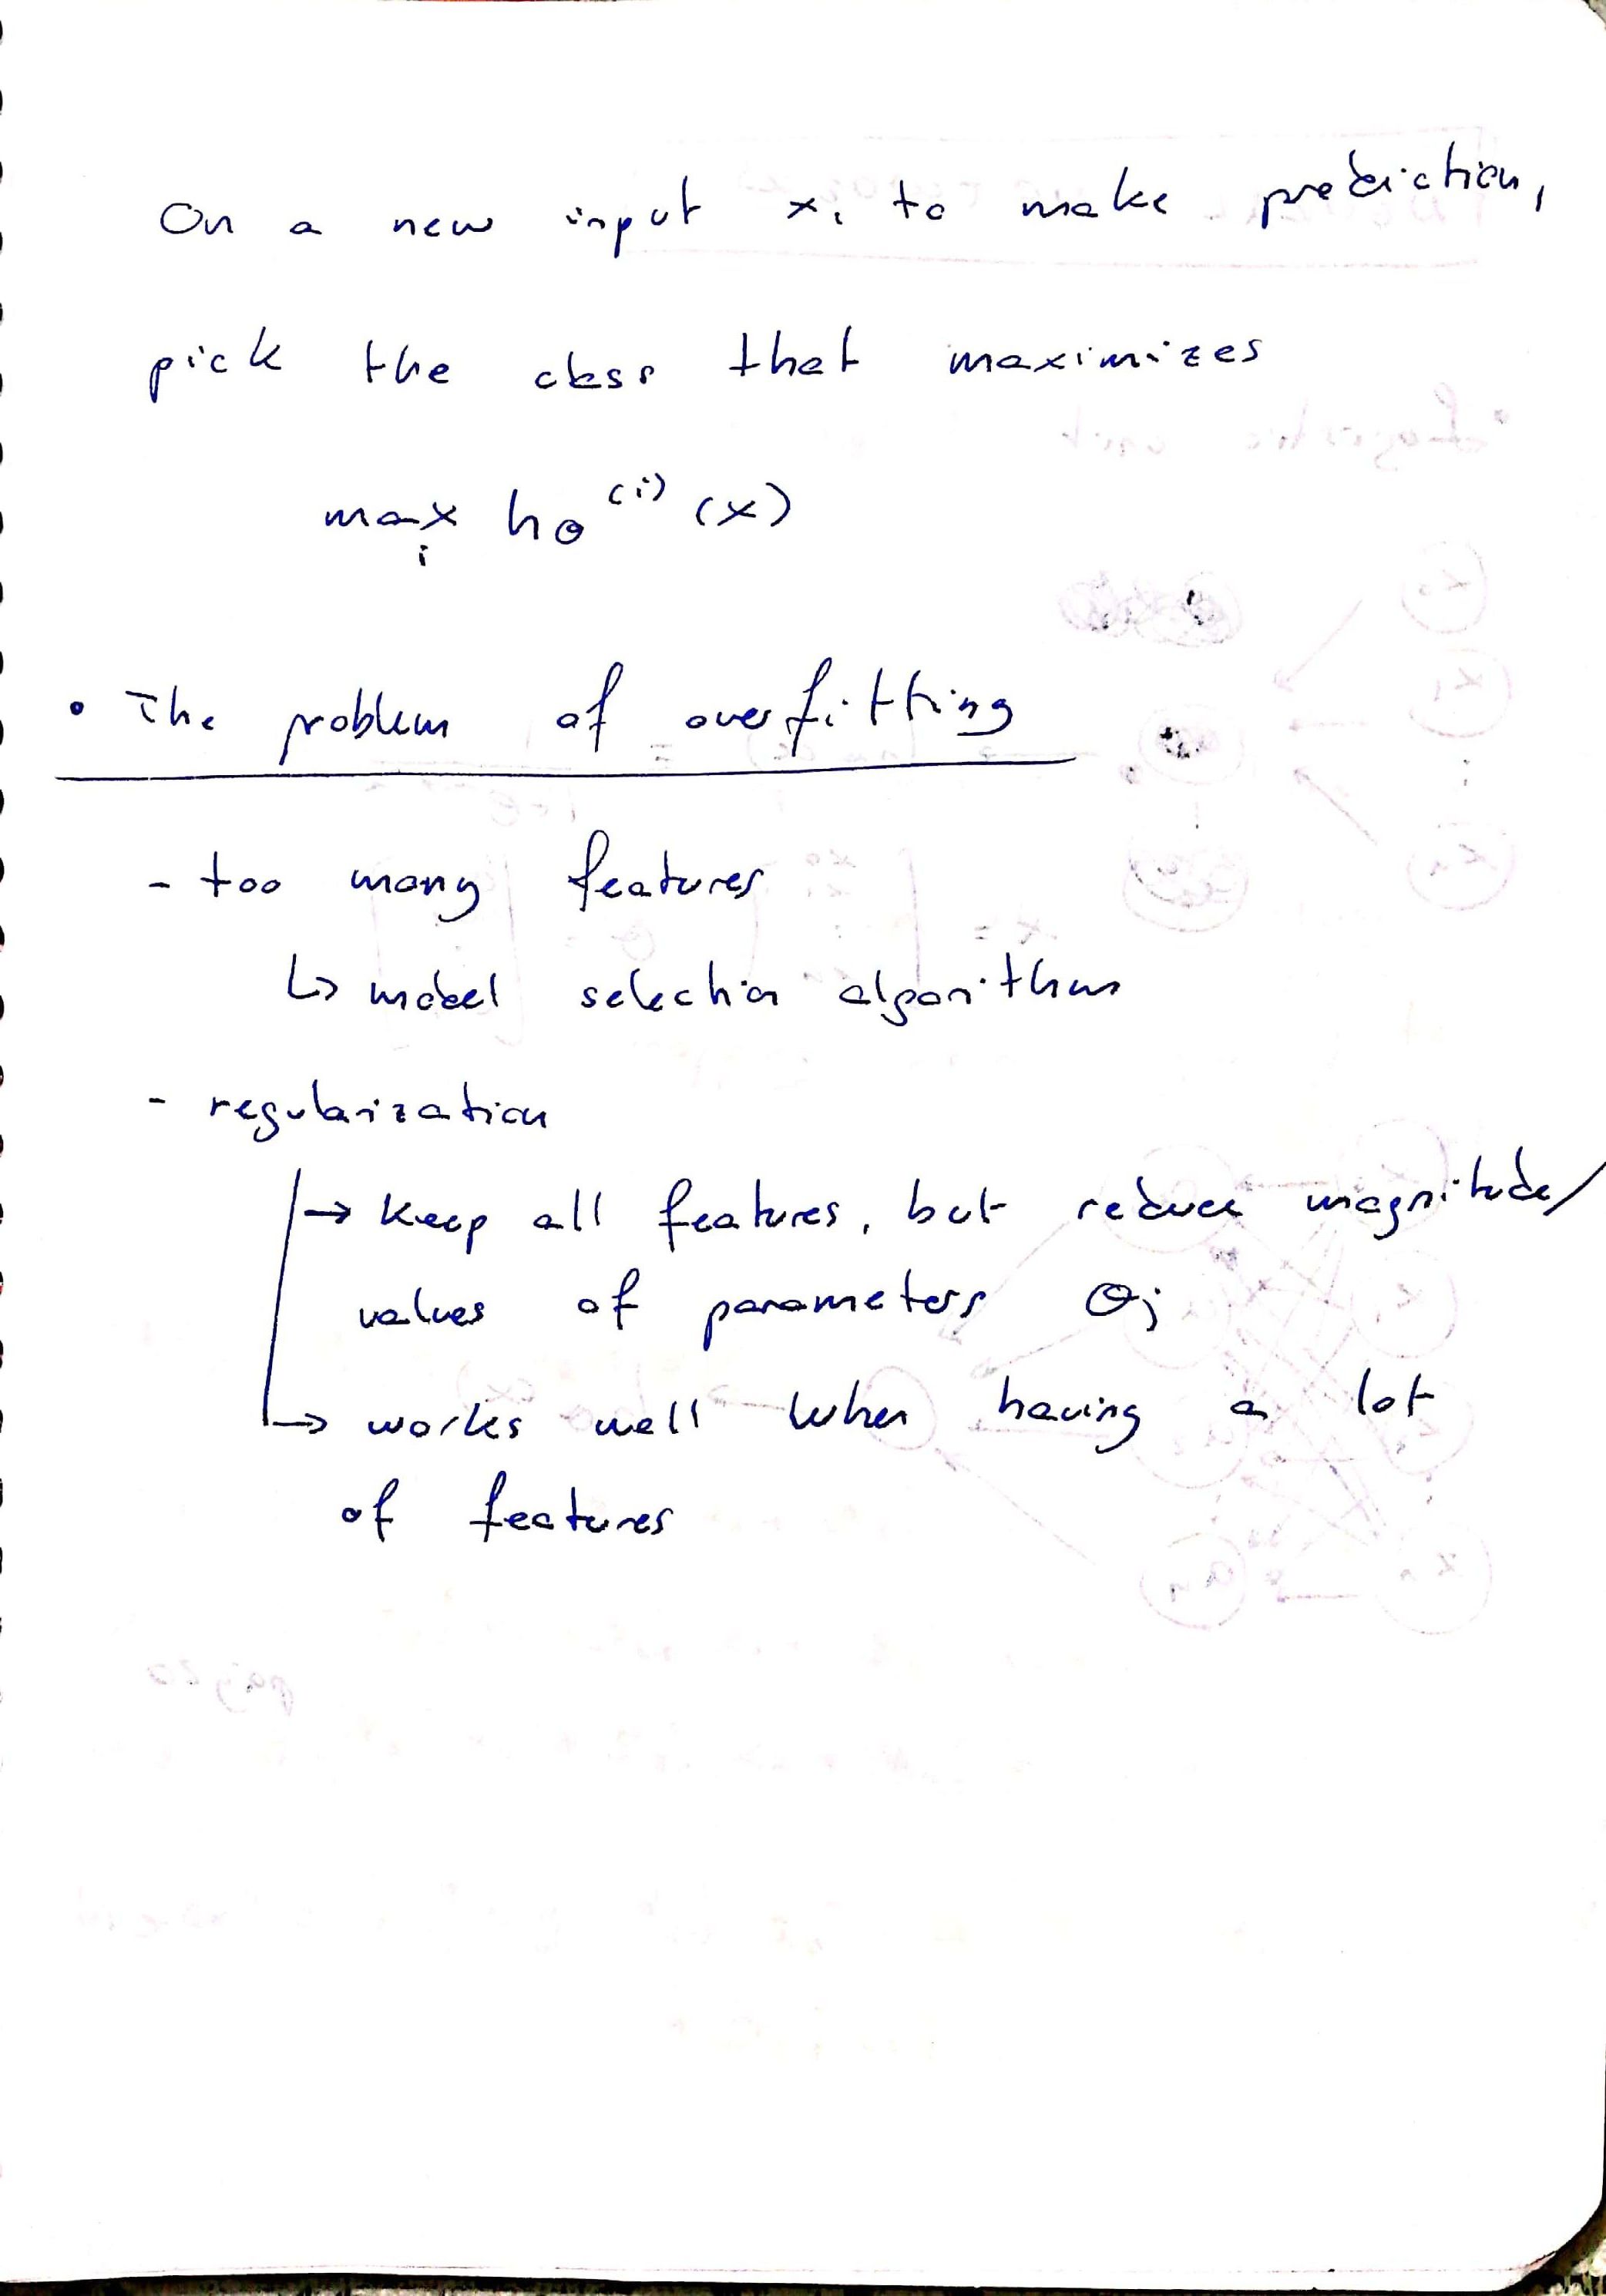 On a new input x, to make prediction,
pick the class that maximizes
max h₀⁽ⁱ⁾ (x)
i
• The problem of overfitting
- too many features
↳ model selection algorithm
- regularization
→ Keep all features, but reduce magnitude/
values of parameters θj
→ works well when having a lot
of features